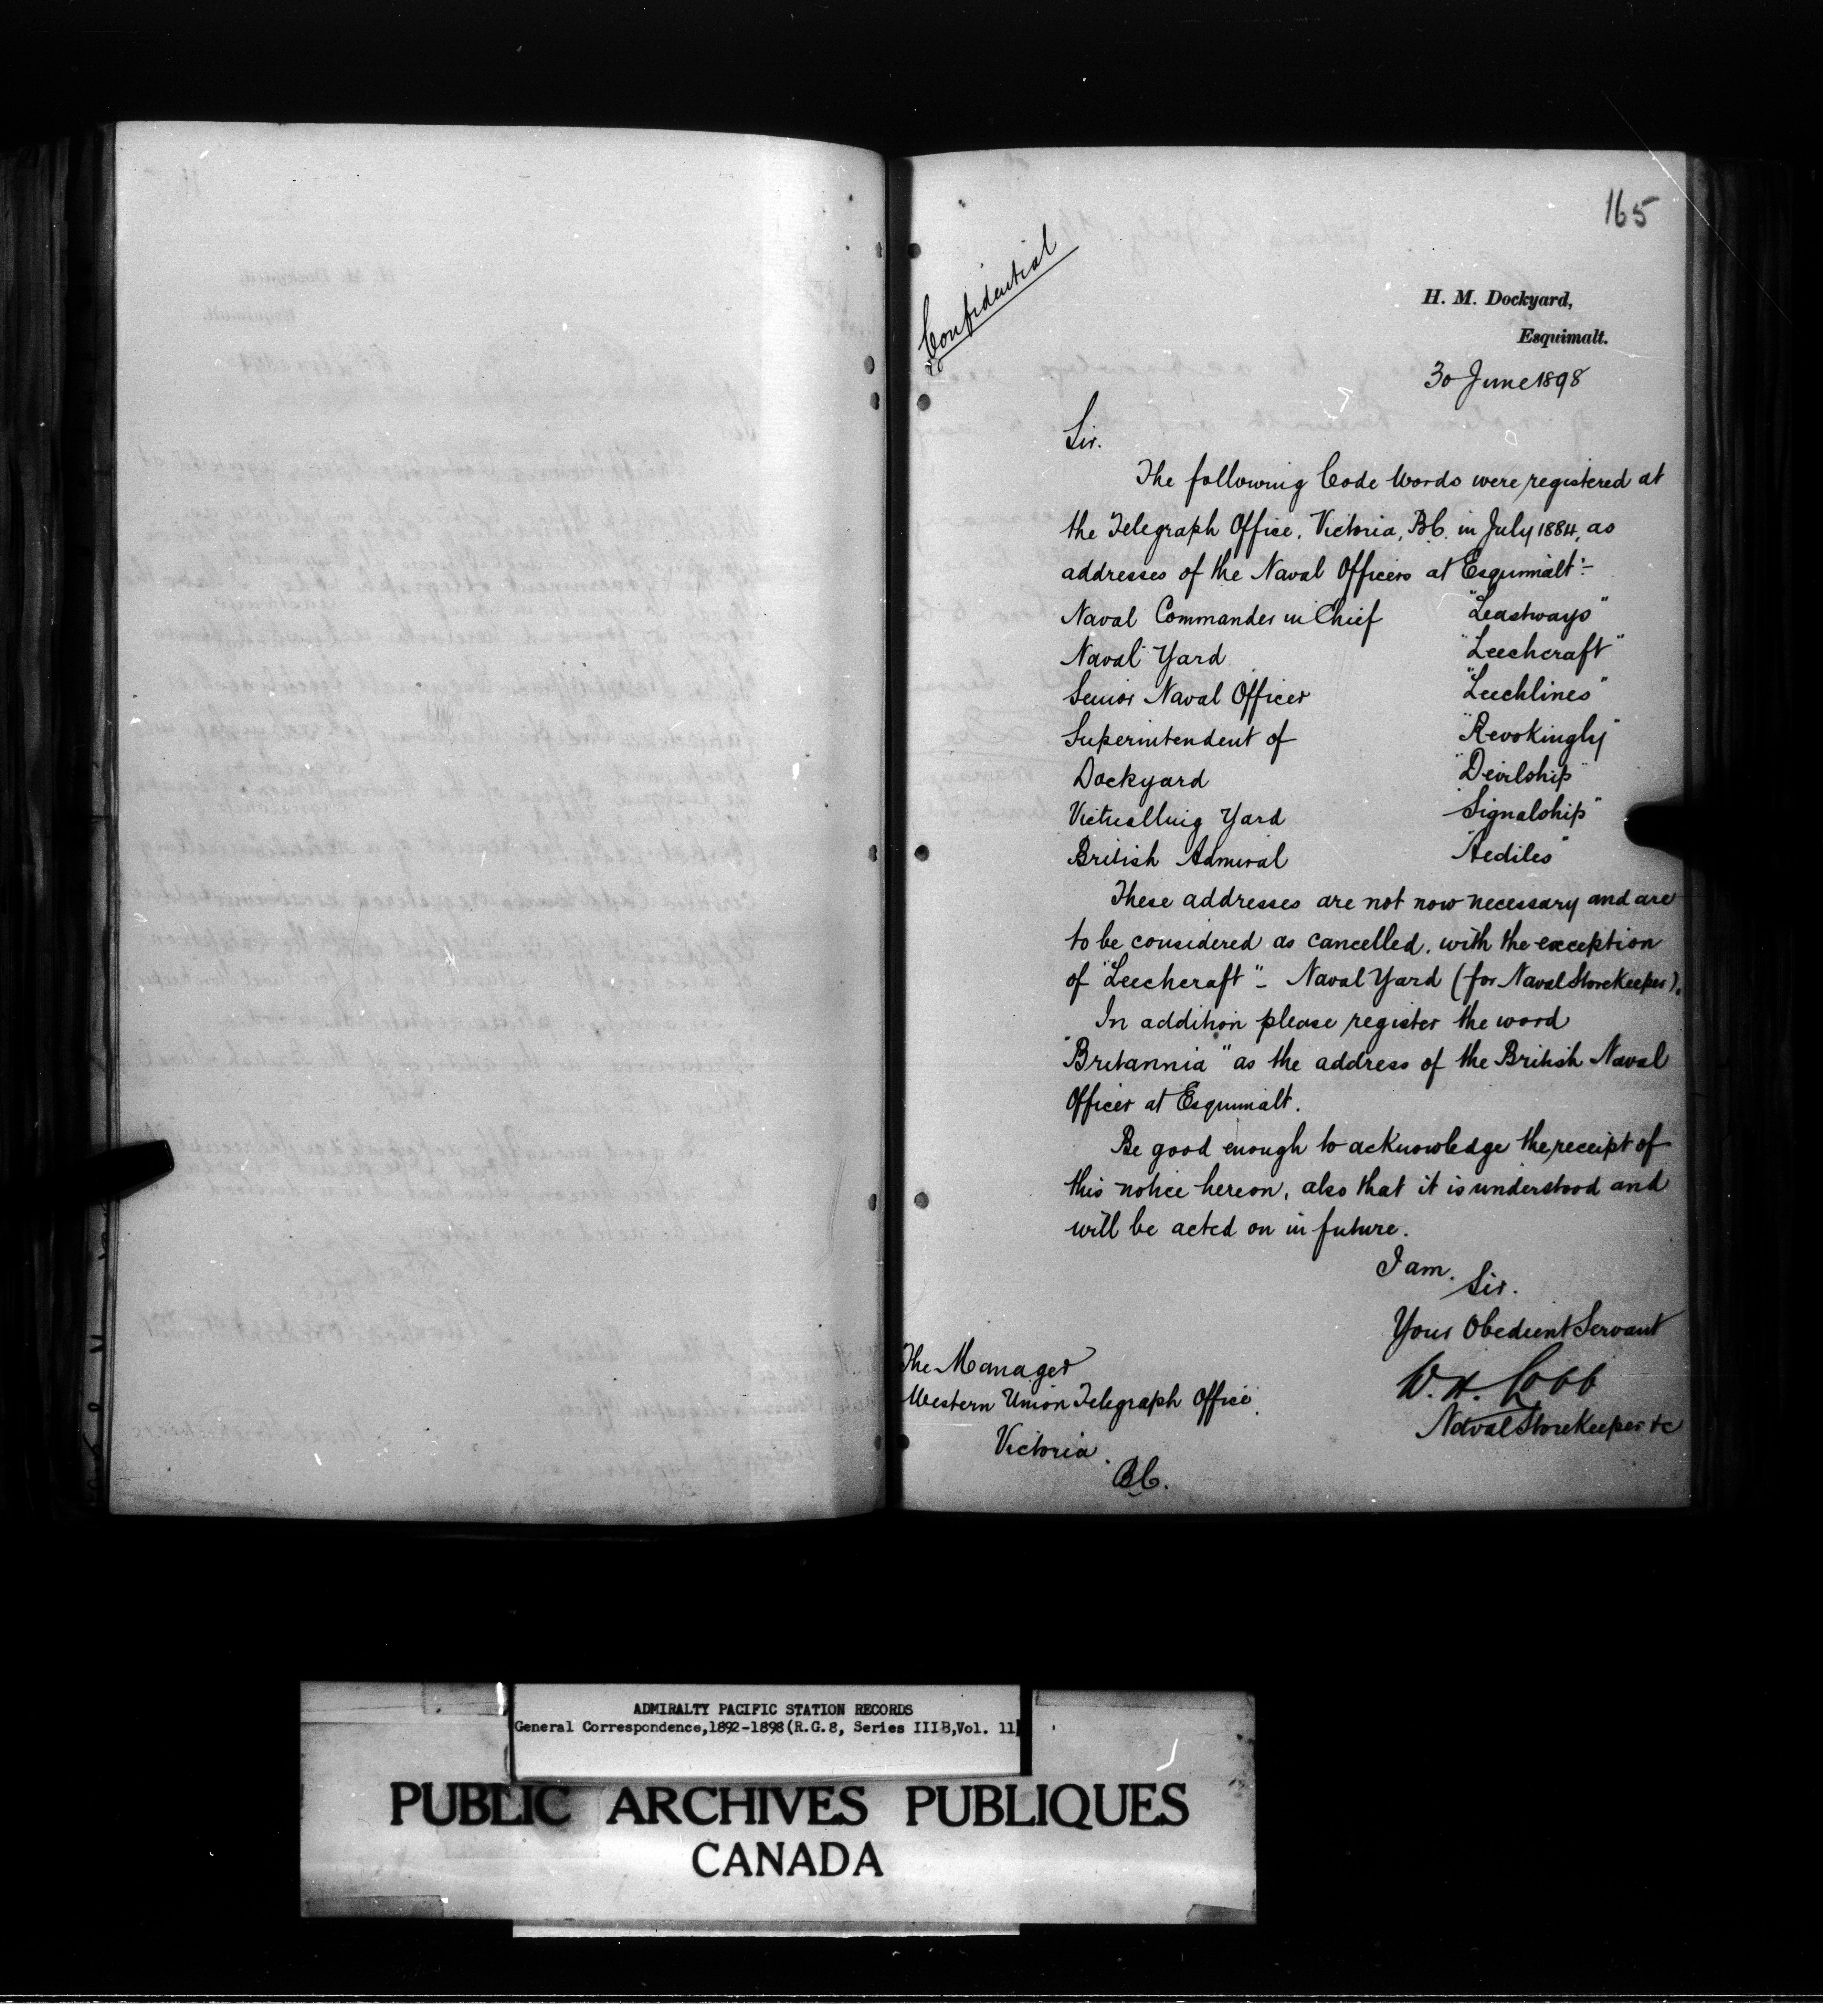 165
Confidential
H. M. Dockyard,
Esquimalt.
30 June 1898
Sir.
The following Code Words were registered at
the Telegraph Office, Victoria, B.C. in July 1884, as
addresses of the Naval Officers at Esquimalt:-
Naval Commander in Chief "Leastways"
Naval Yard "Leechcraft"
Senior Naval Officer "Leechlines"
Superintendent of "Revokingly"
Dockyard "Devilship"
Victualling Yard "Signalship"
British Admiral "Aediles"
These addresses are not now necessary and are
to be considered as cancelled, with the exception
of "Leechcraft" - Naval Yard (for Naval Storekeeper).
In addition please register the word
"Britannia" as the address of the British Naval
Officer at Esquimalt.
Be good enough to acknowledge the receipt of
this notice hereon, also that it is understood and
will be acted on in future.
I am,
Sir.
Your Obedient Servant
W. H. Cobb
Naval Storekeeper &c
The Manager
Western Union Telegraph Office,
Victoria.
B.C.
ADMIRALTY PACIFIC STATION RECORDS
General Correspondence,1892-1898(R.G.8, Series IIIB,Vol. 11)
PUBLIC ARCHIVES PUBLIQUES
CANADA